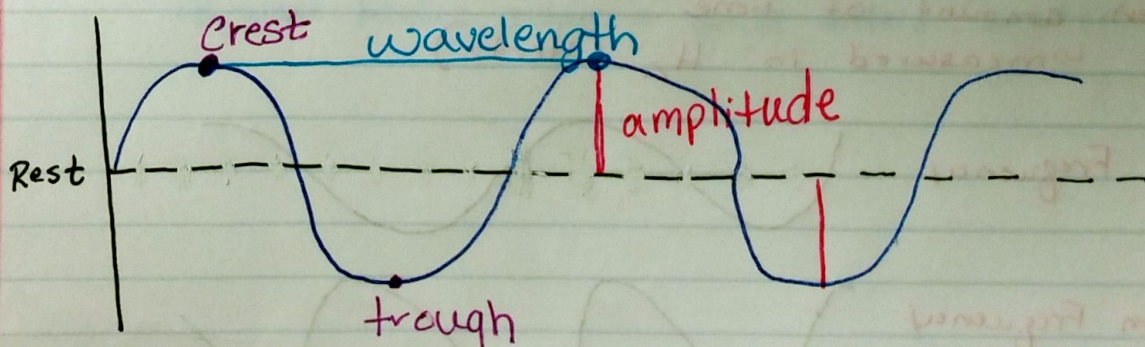 Crest
wavelength
amplitude
Rest
trough